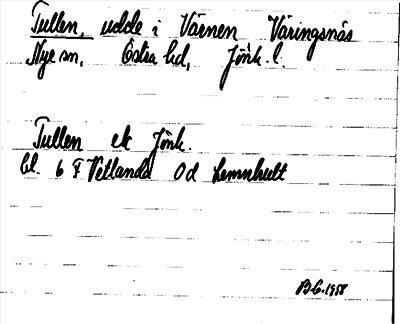 Tullen, udde i Värnen Väringsnäs
Nye sn, Östra hd, Jönk. l.
Tullen ek Jönk.
bl. 6 F Vetlanda Od Lemnhult
B.G. 1958